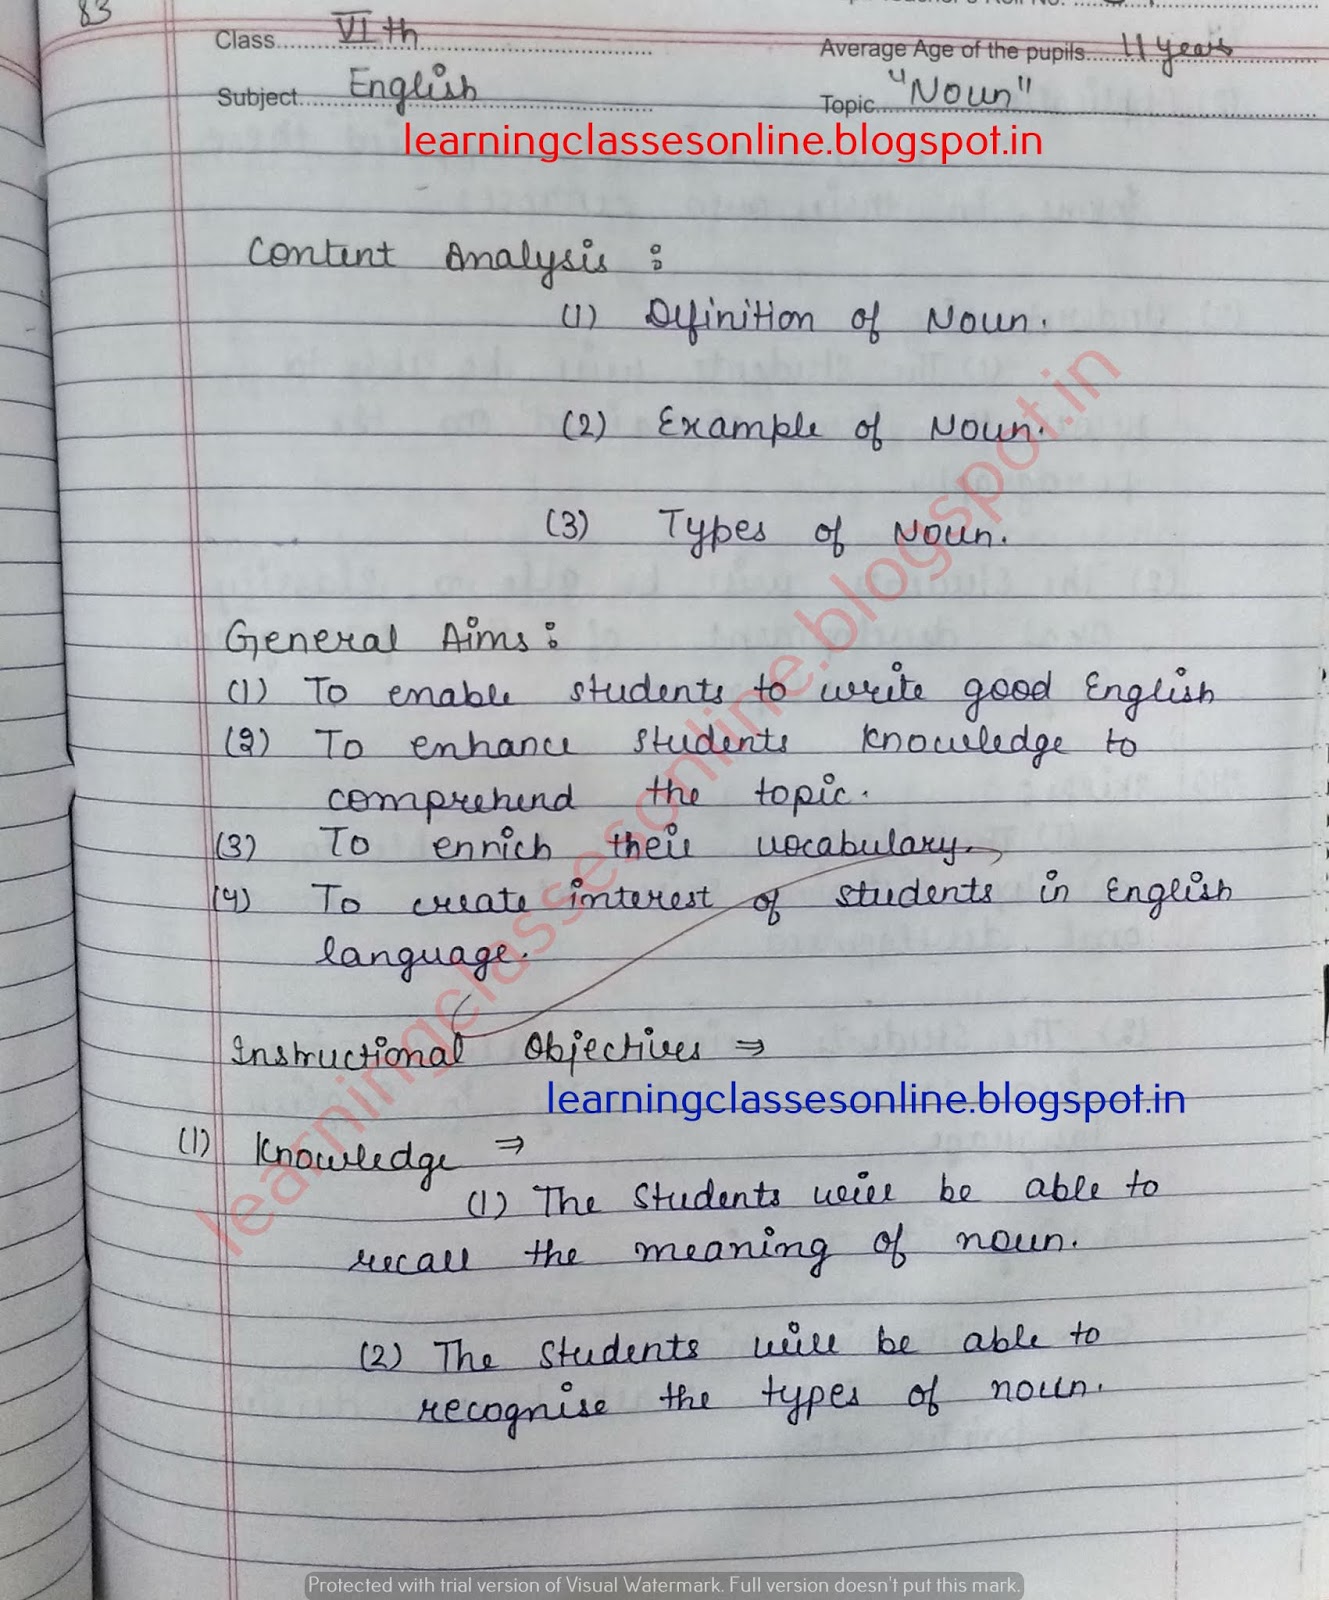 83
Class VIth
Average Age of the pupils 11 years
Subject English
Topic "Noun"
learningclassesonline.blogspot.in
Content Analysis :
(1) Definition of Noun.
(2) Example of Noun.
(3) Types of Noun.
General Aims :
(1) To enable students to write good English
(2) To enhance students knowledge to
comprehend the topic.
(3) To enrich their vocabulary.
(4) To create interest of students in English
language.
Instructional Objectives ⇒
learningclassesonline.blogspot.in
(1) Knowledge ⇒
(1) The Students will be able to
recall the meaning of noun.
(2) The Students will be able to
recognise the types of noun.
learningclassesonline.blogspot.in
Protected with trial version of Visual Watermark. Full version doesn't put this mark.